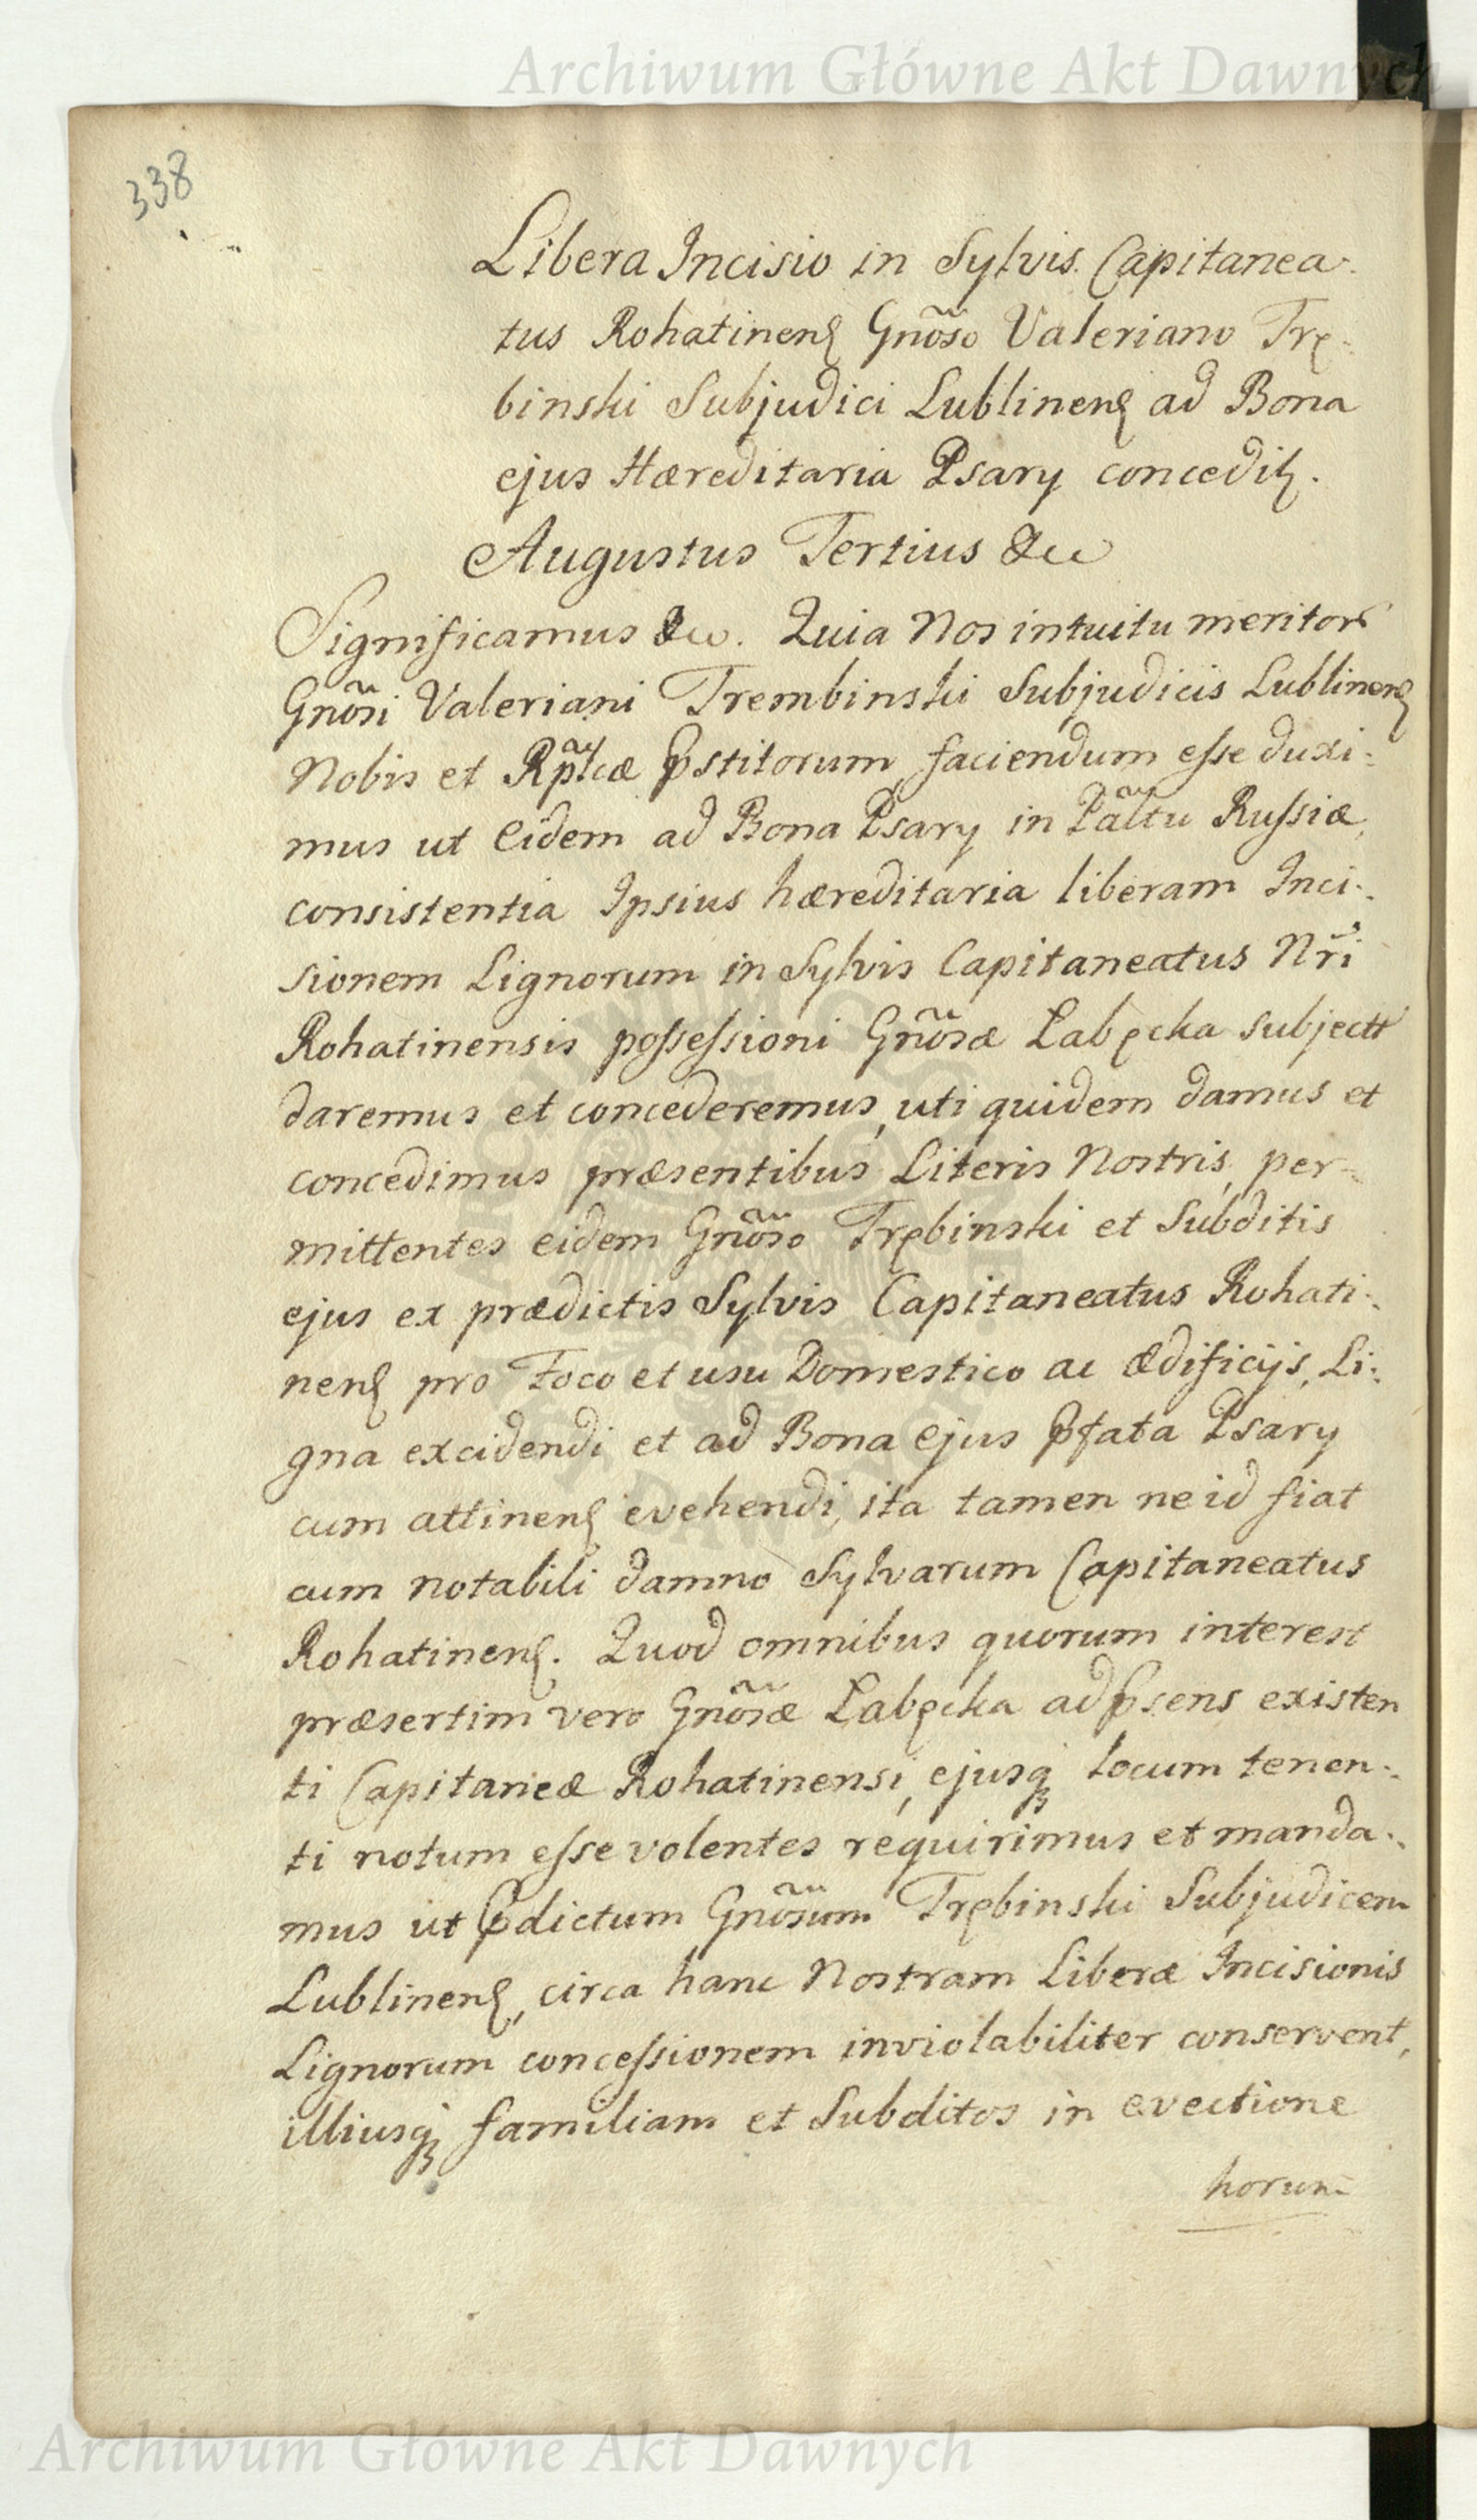 Archiwum Główne Akt Dawnych
338
Libera Incisio in Sylvis Capitanea-
tus Rohatinens Gnõso Valeriano Trę-
binski Subjudici Lublinens ad Bona
ejus Hæreditaria Psary concedit.
Augustus Tertius &c
Significamus &c. Quia Nos intuitu meritor
Gnõsi Valeriani Trembinski Subjudicis Lublinens
Nobis et Rptcæ Pstitorum faciendum esse duxi-
mus ut Eidem ad Bona Psary in Pãltu Russiæ
consistentia Ipsius hæreditaria liberam Inci-
sionem Lignorum in Sylvis Capitaneatus Nr̃i
Rohatinensis possessioni Gnõsæ Łabęcka subject
daremus et concederemus, uti quidem damus et
concedimus præsentibus Literis Nostris, per-
mittentes eidem Gnõso Trębinski et Subditis
ejus ex prædictis Sylvis Capitaneatus Rohati-
nens pro Foco et usu Domestico ac Ædificijs, Li-
gna excidendi et ad Bona ejus Pfata Psary
cum attinens evehendi, ita tamen ne id fiat
cum notabili damno Sylvarum Capitaneatus
Rohatinens. Quod omnibus quorum interest
præsertim vero Gnõsæ Łabęcka ad Psens existen
ti Capitaneæ Rohatinensi, ejusq locum tenen-
ti notum esse volentes requirimus et manda-
mus ut Pdictum Gnõsum Trębinski Subjudicem
Lublinens, circa hanc Nostram Liberæ Incisionis
Lignorum concessionem inviolabiliter conservent,
illiusq familiam et Subditos in evectione
horum
Archiwum Główne Akt Dawnych